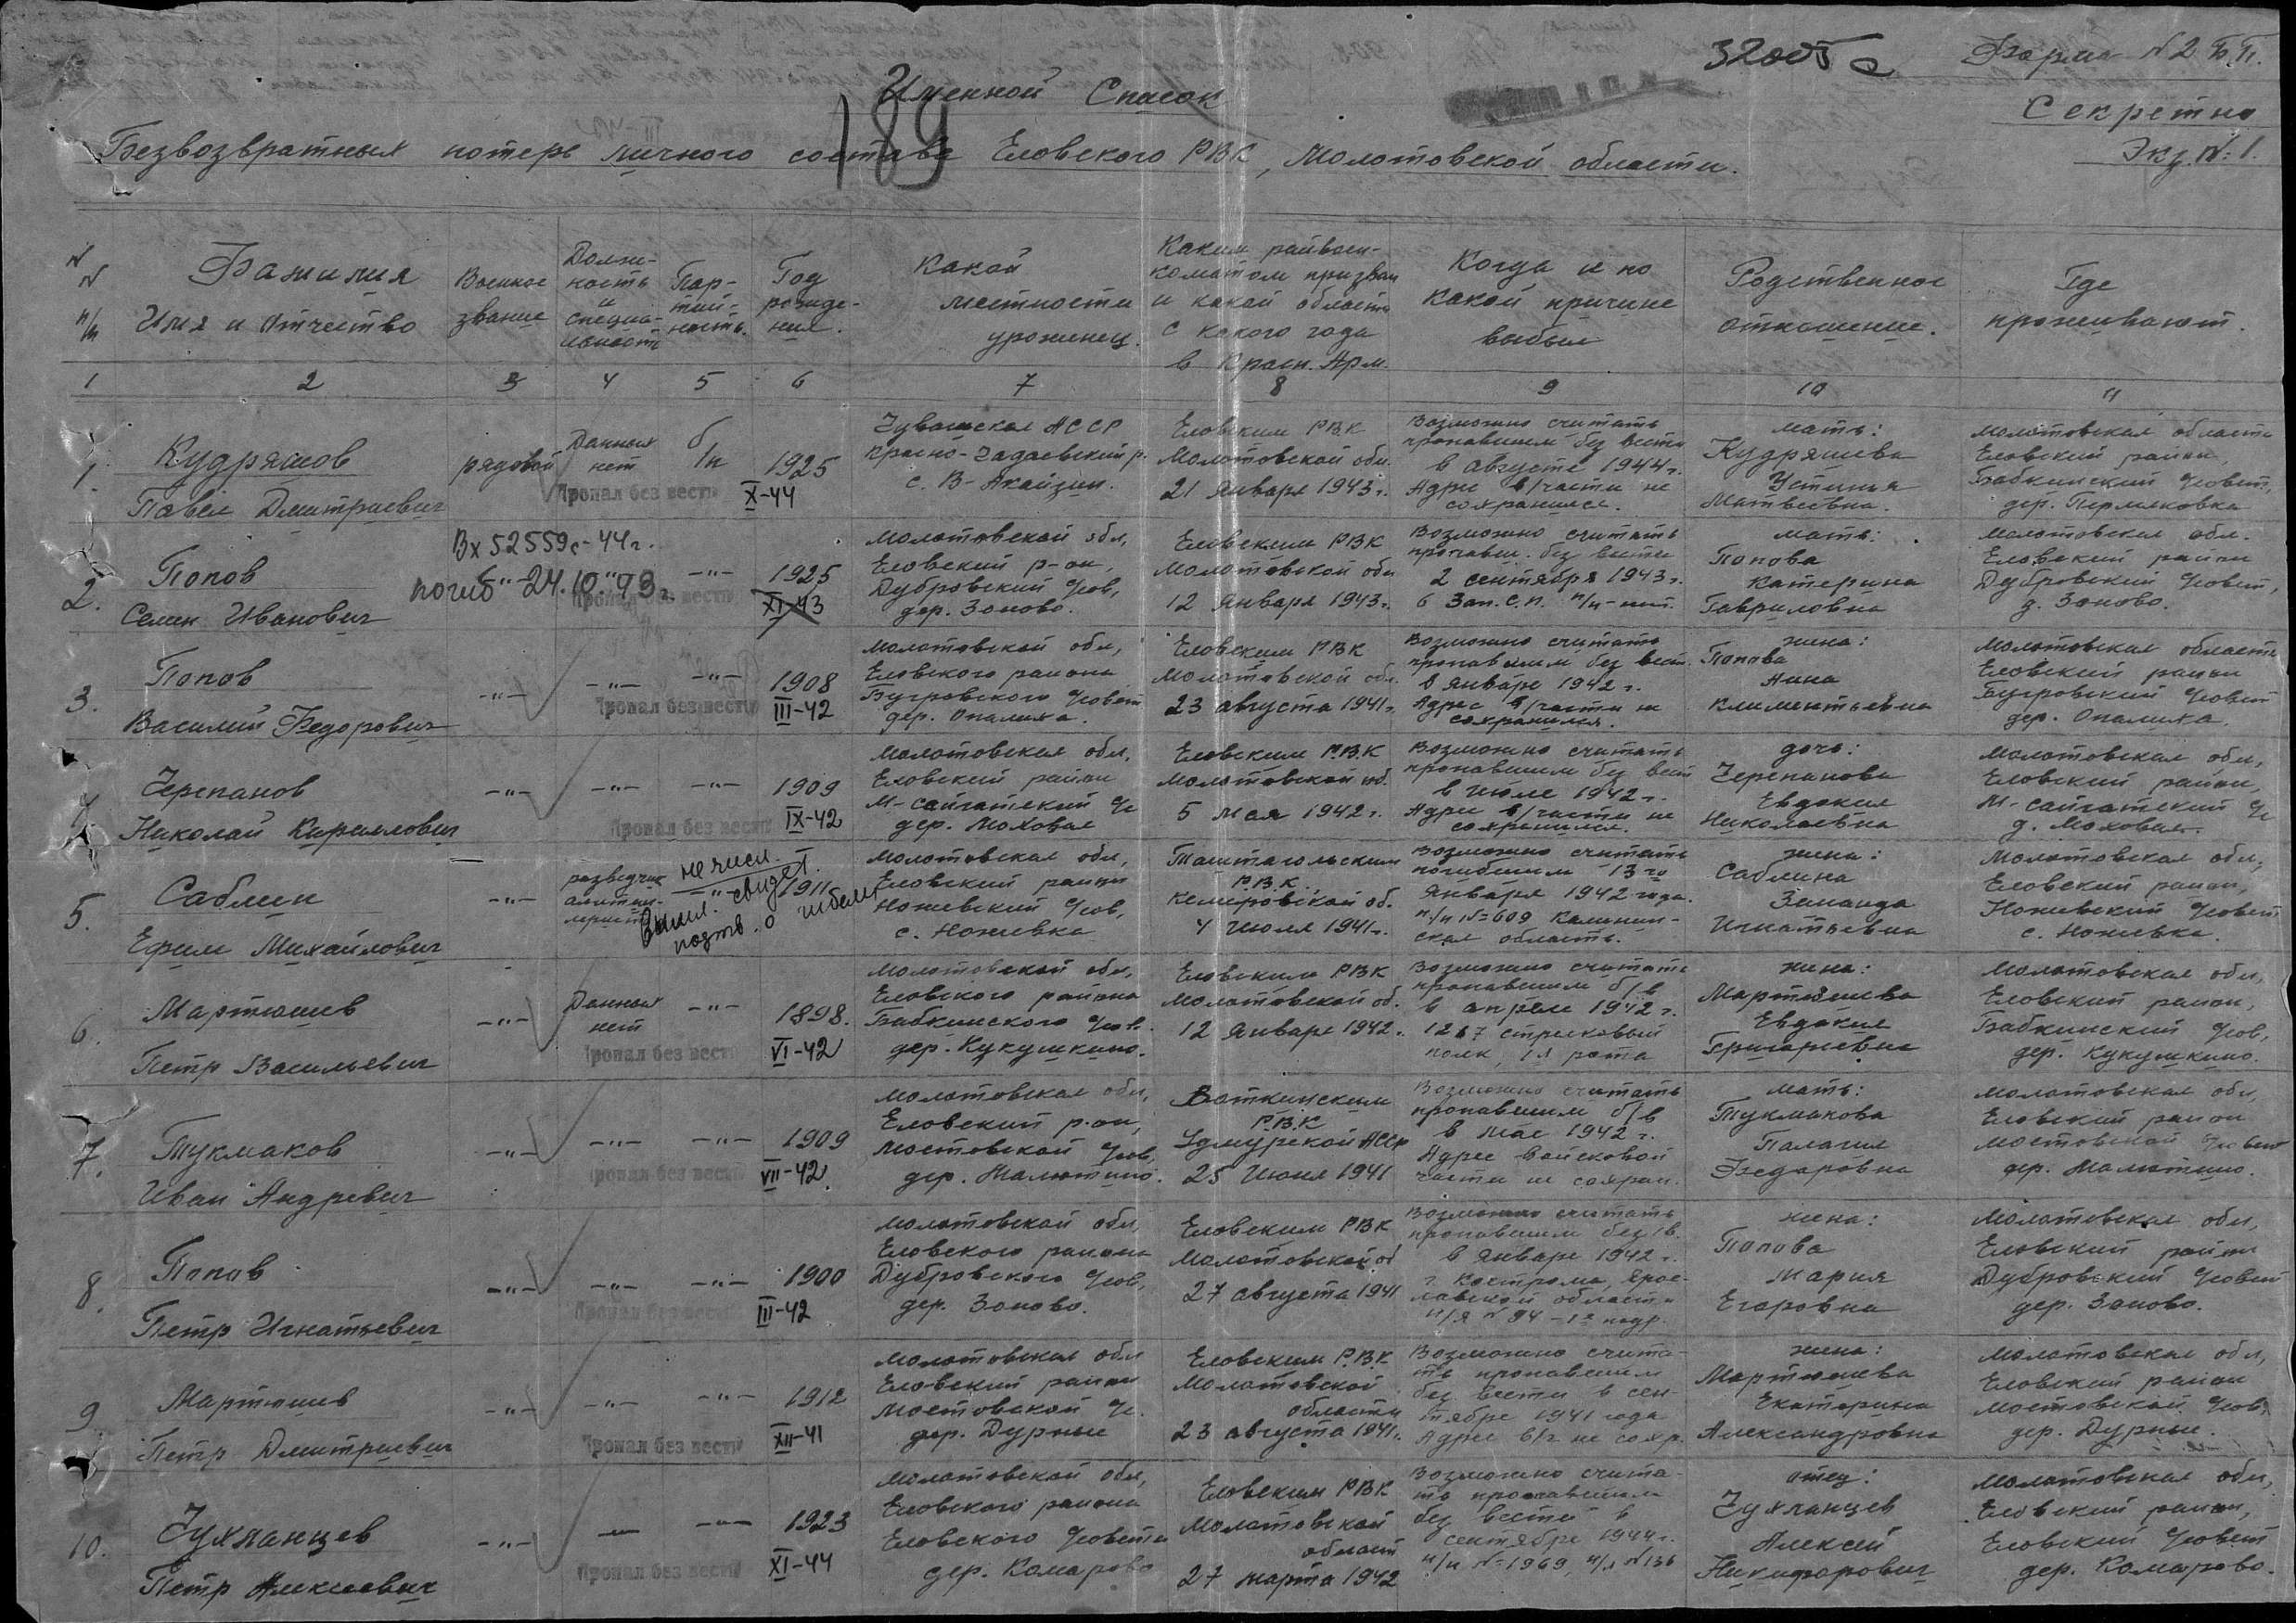 32005 с
Форма № 2 Б.П.
Секретно
Экз. №: 1.
Именной Список
189
Безвозвратных потерь личного состава Еловского РВК, Молотовской области.
N N п/п
Фамилия Имя и Отчество
Военное звание
Долж-ность и специа-льность
Пар-тий-ность.
Год рожде-ния.
Какой местности уроженец.
Каким райвоен-коматом призван и какой области с какого года в Красн. Арм.
Когда и по какой причине выбыл
Родственное отношение.
Где проживают.
1 2 3 4 5 6 7 8 9 10 11
1.
Кудряшов
Павел Дмитриевич
рядовой
Данных нет
Пропал без вести
б/п
1925
X-44
Чувашская АССР
Красно-Чадаевский р.
с. В-Акайзин.
Еловским РВК
Молотовской обл.
21 января 1943 г.
Возможно считать
пропавшим без вести
в августе 1944 г.
Адрес в/части не
сохранился.
мать:
Кудряшева
Устинья
Матвеевна.
Молотовская область
Еловский район,
Бабкинский Совет,
дер. Пермяковка
2.
Попов
Семен Иванович
Вх 52559с-44 г.
погиб 24.10.43 г.
Пропал без вести
-"-
1925
XI-43
Молотовской обл,
Еловский р-он,
Дубровский Усов,
дер. Зоново.
Еловским РВК
Молотовской обл
12 января 1943 г.
Возможно считать
пропавш. без вести
2 сентября 1943 г.
6 Зап. С.П.
мать:
Попова
Катерина
Гавриловна
Молотовская обл.
Еловский район
Дубровский Совет,
д. Зоново.
3.
Попов
Василий Федорович
-"-
-"-
-"-
Пропал без вести
1908
III-42
Молотовской обл,
Еловского района
Бугровского Совет
дер. Опалиха.
Еловским РВК
Молотовской обл.
23 августа 1941 г.
Возможно считать
пропавшим без вест.
в январе 1942 г.
Адрес в/части не
сохранился.
жена:
Попова
Анна
Климентьевна
Молотовская область
Еловский район
Бугровский Совет
дер. Опалиха.
4.
Черепанов
Николай Кириллович
-"-
-"-
-"-
Пропал без вести
1909
IX-42
Молотовская обл,
Еловский район
М-сайгатский
дер. Моховая
Еловским Р.В.К
Молотовской об.
5 мая 1942 г.
Возможно считать
пропавшим без вест
в июле 1942 г.
Адрес в/части не
сохранился.
дочь:
Черепанова
Евдокия
Николаевна
Молотовская обл,
Еловский район,
М-сайгатский
д. Моховая.
5.
Саблин
Ефим Михайлович
-"-
разведчик
не числ.
о гибели
1911
Молотовская обл,
Еловский район
Ножевский Усов,
с. Ножевка
Таштагольским
Р.В.К.
Кемеровской об.
4 июля 1941 г.
Возможно считать
погибшим 13 го
января 1942 года.
п/п №-609 Калинин-
ская область.
жена:
Саблина
Зинаида
Игнатьевна
Молотовская обл,
Еловский район,
Ножевский Совет
с. Ножевка.
6.
Мартюшев
Петр Васильевич
-"-
Данных нет
-"-
Пропал без вести
1898.
VI-42
Молотовской обл,
Еловского района
Бабкинского Усов.
дер. Кукушкино.
Еловским РВК
Молотовской об.
12 января 1942 г.
Возможно считать
пропавшим б/в
в апреле 1942 г.
1267 стрелковый
полк, 1я рота
жена:
Мартюшева
Евдокия
Григорьевна
Молотовская обл,
Еловский район,
Бабкинский Усов,
дер. Кукушкино.
7.
Тукмаков
Иван Андреевич
-"-
-"-
-"-
Пропал без вести
1909
VII-42
Молотовская обл,
Еловский р-он,
Мостовской Усов,
дер. Малютино.
Воткинским
Р.В.К
Удмурской АССР
25 июня 1941
Возможно считать
пропавшим б/в
в мае 1942 г.
Адрес войсковой
части не сохран.
мать:
Тукмакова
Палагия
Федоровна
Молотовская обл,
Еловский район
Мостовской Усовет
дер. Малютино.
8.
Попов
Петр Игнатьевич
-"-
-"-
-"-
Пропал без вести
1900
III-42
Молотовской обл,
Еловского района
Дубровского Усов,
дер. Зоново.
Еловским РВК
Молотовской об
27 августа 1941
Возможно считать
пропавшим без/в.
в январе 1942 г.
г. Кострома, Ярос-
лавской области
п/я № 94
жена:
Попова
Мария
Егоровна
Молотовская обл,
Еловский район
Дубровский Усовет
дер. Зоново.
9.
Мартюшев
Петр Дмитриевич
-"-
-"-
-"-
Пропал без вести
1912
XII-41
Молотовская обл
Еловский район
Мостовской Ус.
дер. Дурные
Еловским Р.В.К
Молотовской
области
23 августа 1941 г.
Возможно счита-
ть пропавшим
без вести в сен-
тябре 1941 года
Адрес в/ч не сохр.
жена:
Мартюшева
Екатерина
Александровна
Молотовская обл,
Еловский район
Мостовской Усов,
дер. Дурные.
10.
Чухланцев
Петр Алексеевич
-"-
-"-
-"-
Пропал без вести
1923
XI-44
Молотовской обл,
Еловского района
Еловского Усовета
дер. Комарово
Еловским РВК
Молотовской
област
27 марта 1942
Возможно счита-
ть пропавшим
без вести в
сентябре 1944 г.
п/п №-1969, п/я № 136
отец:
Чухланцев
Алексей
Никифорович
Молотовская обл,
Еловский район,
Еловский Усовет
дер. Комарово.